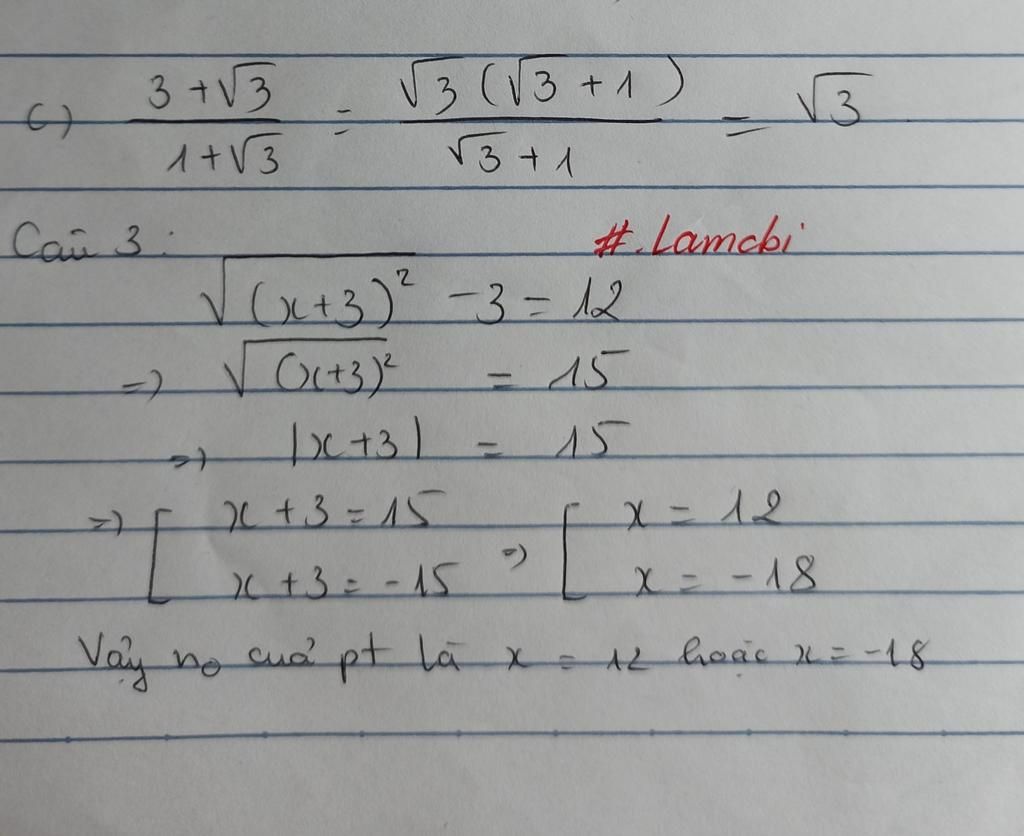 c) \frac{3+\sqrt{3}}{1+\sqrt{3}} = \frac{\sqrt{3}(\sqrt{3}+1)}{\sqrt{3}+1} = \sqrt{3}
Câu 3:
#.Lamcbi
\sqrt{(x+3)^2} - 3 = 12
=) \sqrt{(x+3)^2} = 15
=) |x+3| = 15
=) [ x+3=15 =) [ x = 12
x+3=-15 x = -18
Vậy no của pt là x = 12 hoặc x = -18